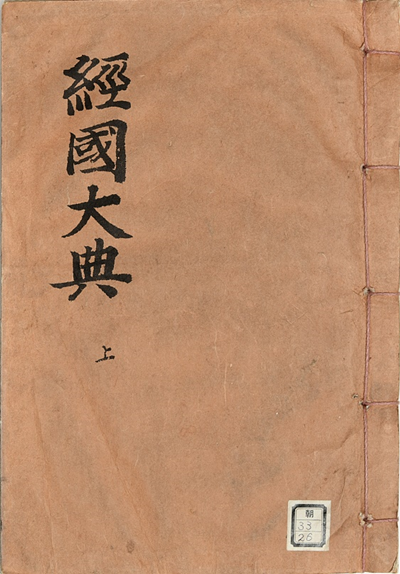 經國大典
上
朝
33
26